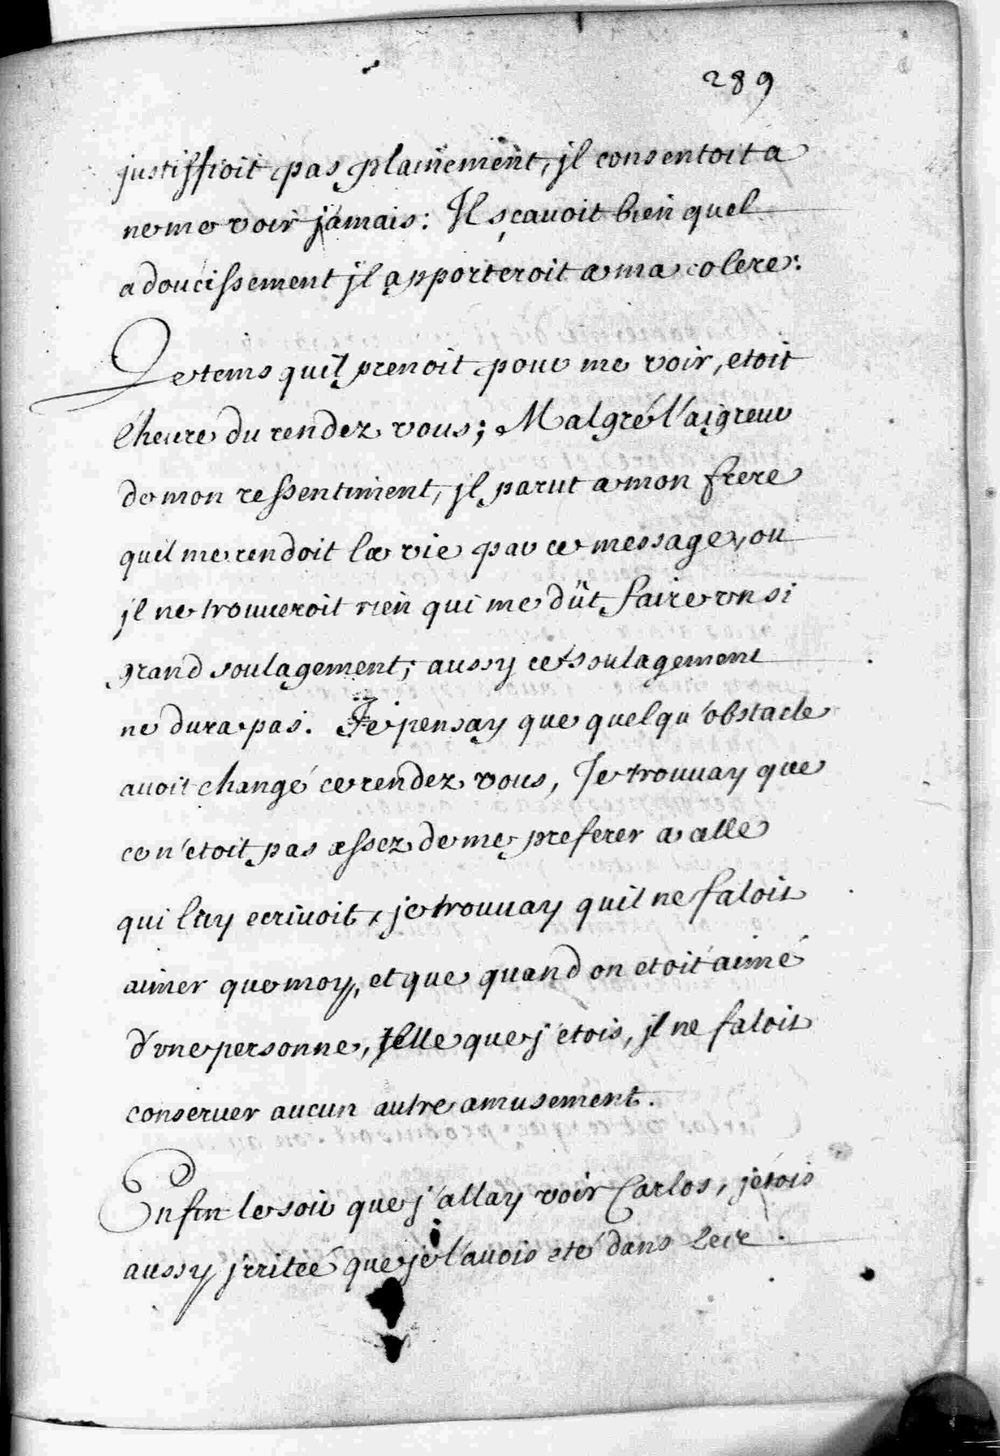 289
justiffioit pas plainement, jl consentoit a
ne me voir jamais: Jl sçauoit bien quel
adoucissement jl apporteroit a ma colere:
Le tems quil prenoit pour me voir, etoit
l'heure du rendez vous; Malgré l'aigreur
de mon ressentiment, jl parut a mon frere
quil me rendoit la vie par ce message, ou
jl ne trouueroit rien qui me dût faire vn si
grand soulagement; aussy cet soulagement
ne dura pas. Je pensay que quelqu'obstacle
auoit changé ce rendez vous, Je trouuay que
ce n'etoit pas assez de me preferer a celle
qui luy ecriuoit, je trouuay quil ne faloit
aimer que moy, et que quand on etoit aimé
d'vne personne, telle que j'etois, jl ne faloit
conseruer aucun autre amusement.
Enfin le soir que j'allay voir Carlos, j'etois
aussy jrritée que je l'auois eté dans